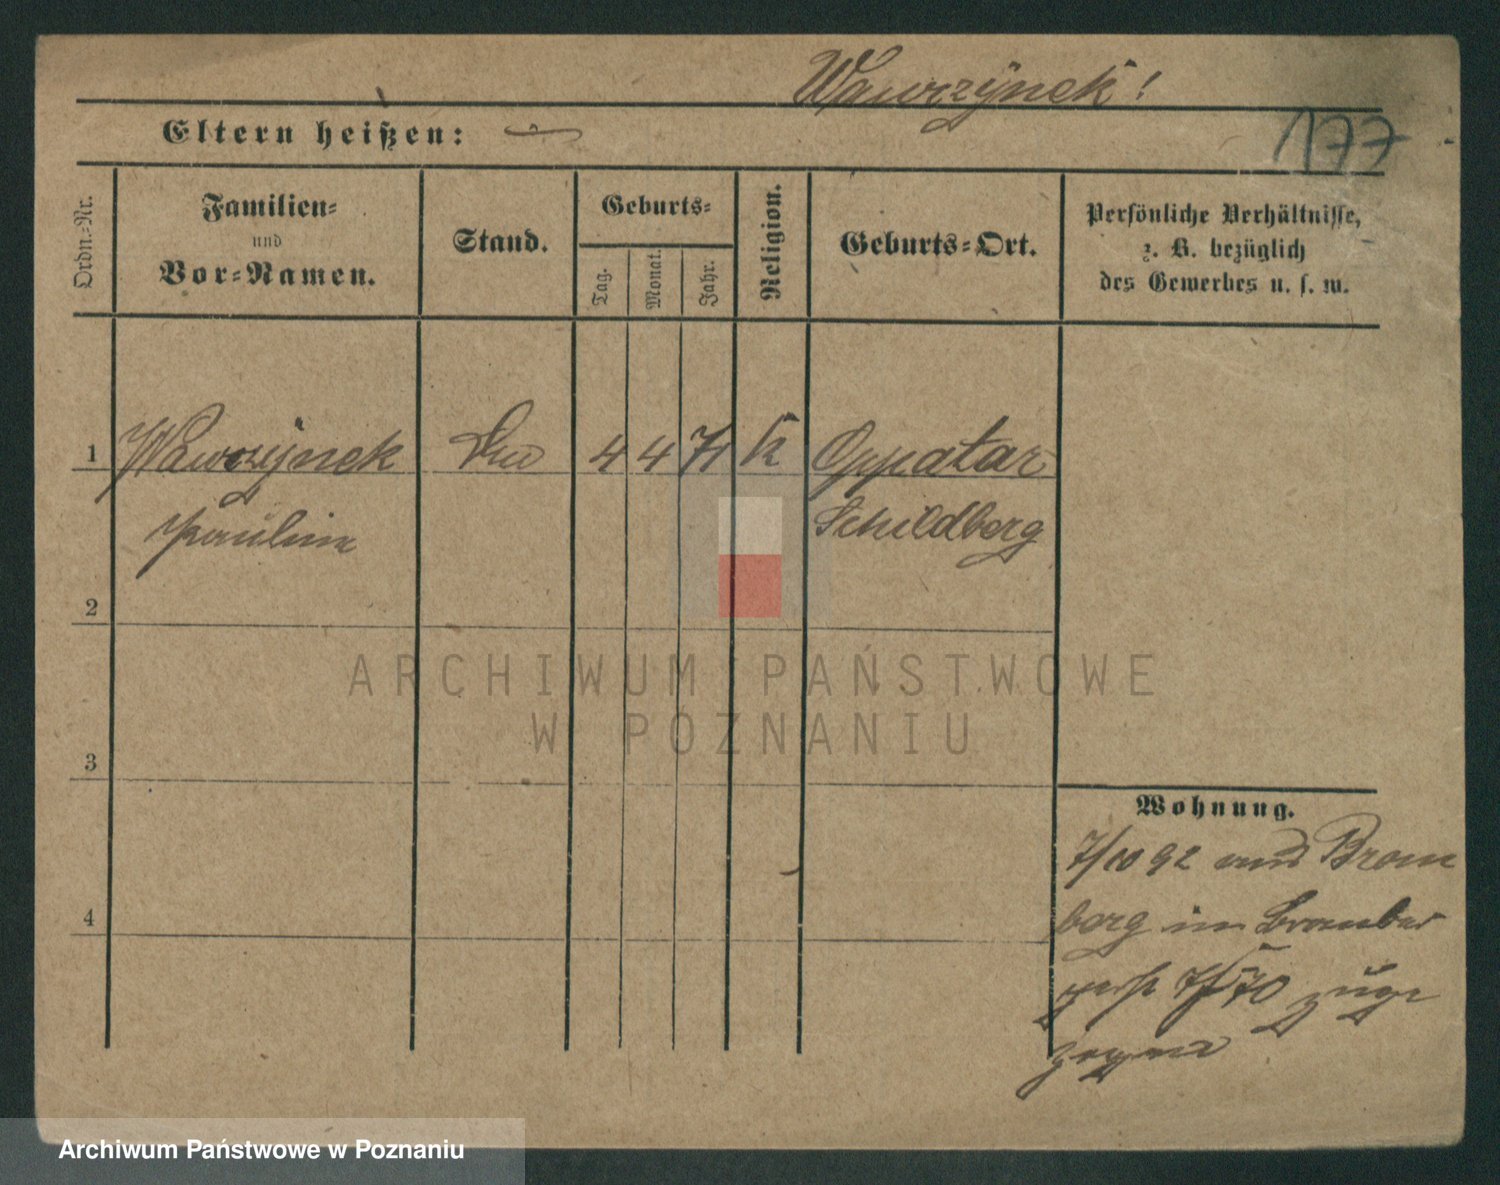 Wawrzÿnek!
177
Eltern heißen:
Ordn.-Nr.
Familien-
und
Vor-Namen.
Stand.
Geburts-
Tag.
Monat.
Jahr.
Religion.
Geburts-Ort.
Persönliche Verhältnisse,
z. B. bezüglich
des Gewerbes u. s. w.
1 Wawrzÿnek 4 4 71 k Oppatar
Pauline Schildberg
2
3
4
Wohnung.
7/10 92 aus Brom
berg im Bromber
70 zuge
zogen
ARCHIWUM PAŃSTWOWE
W POZNANIU
Archiwum Państwowe w Poznaniu